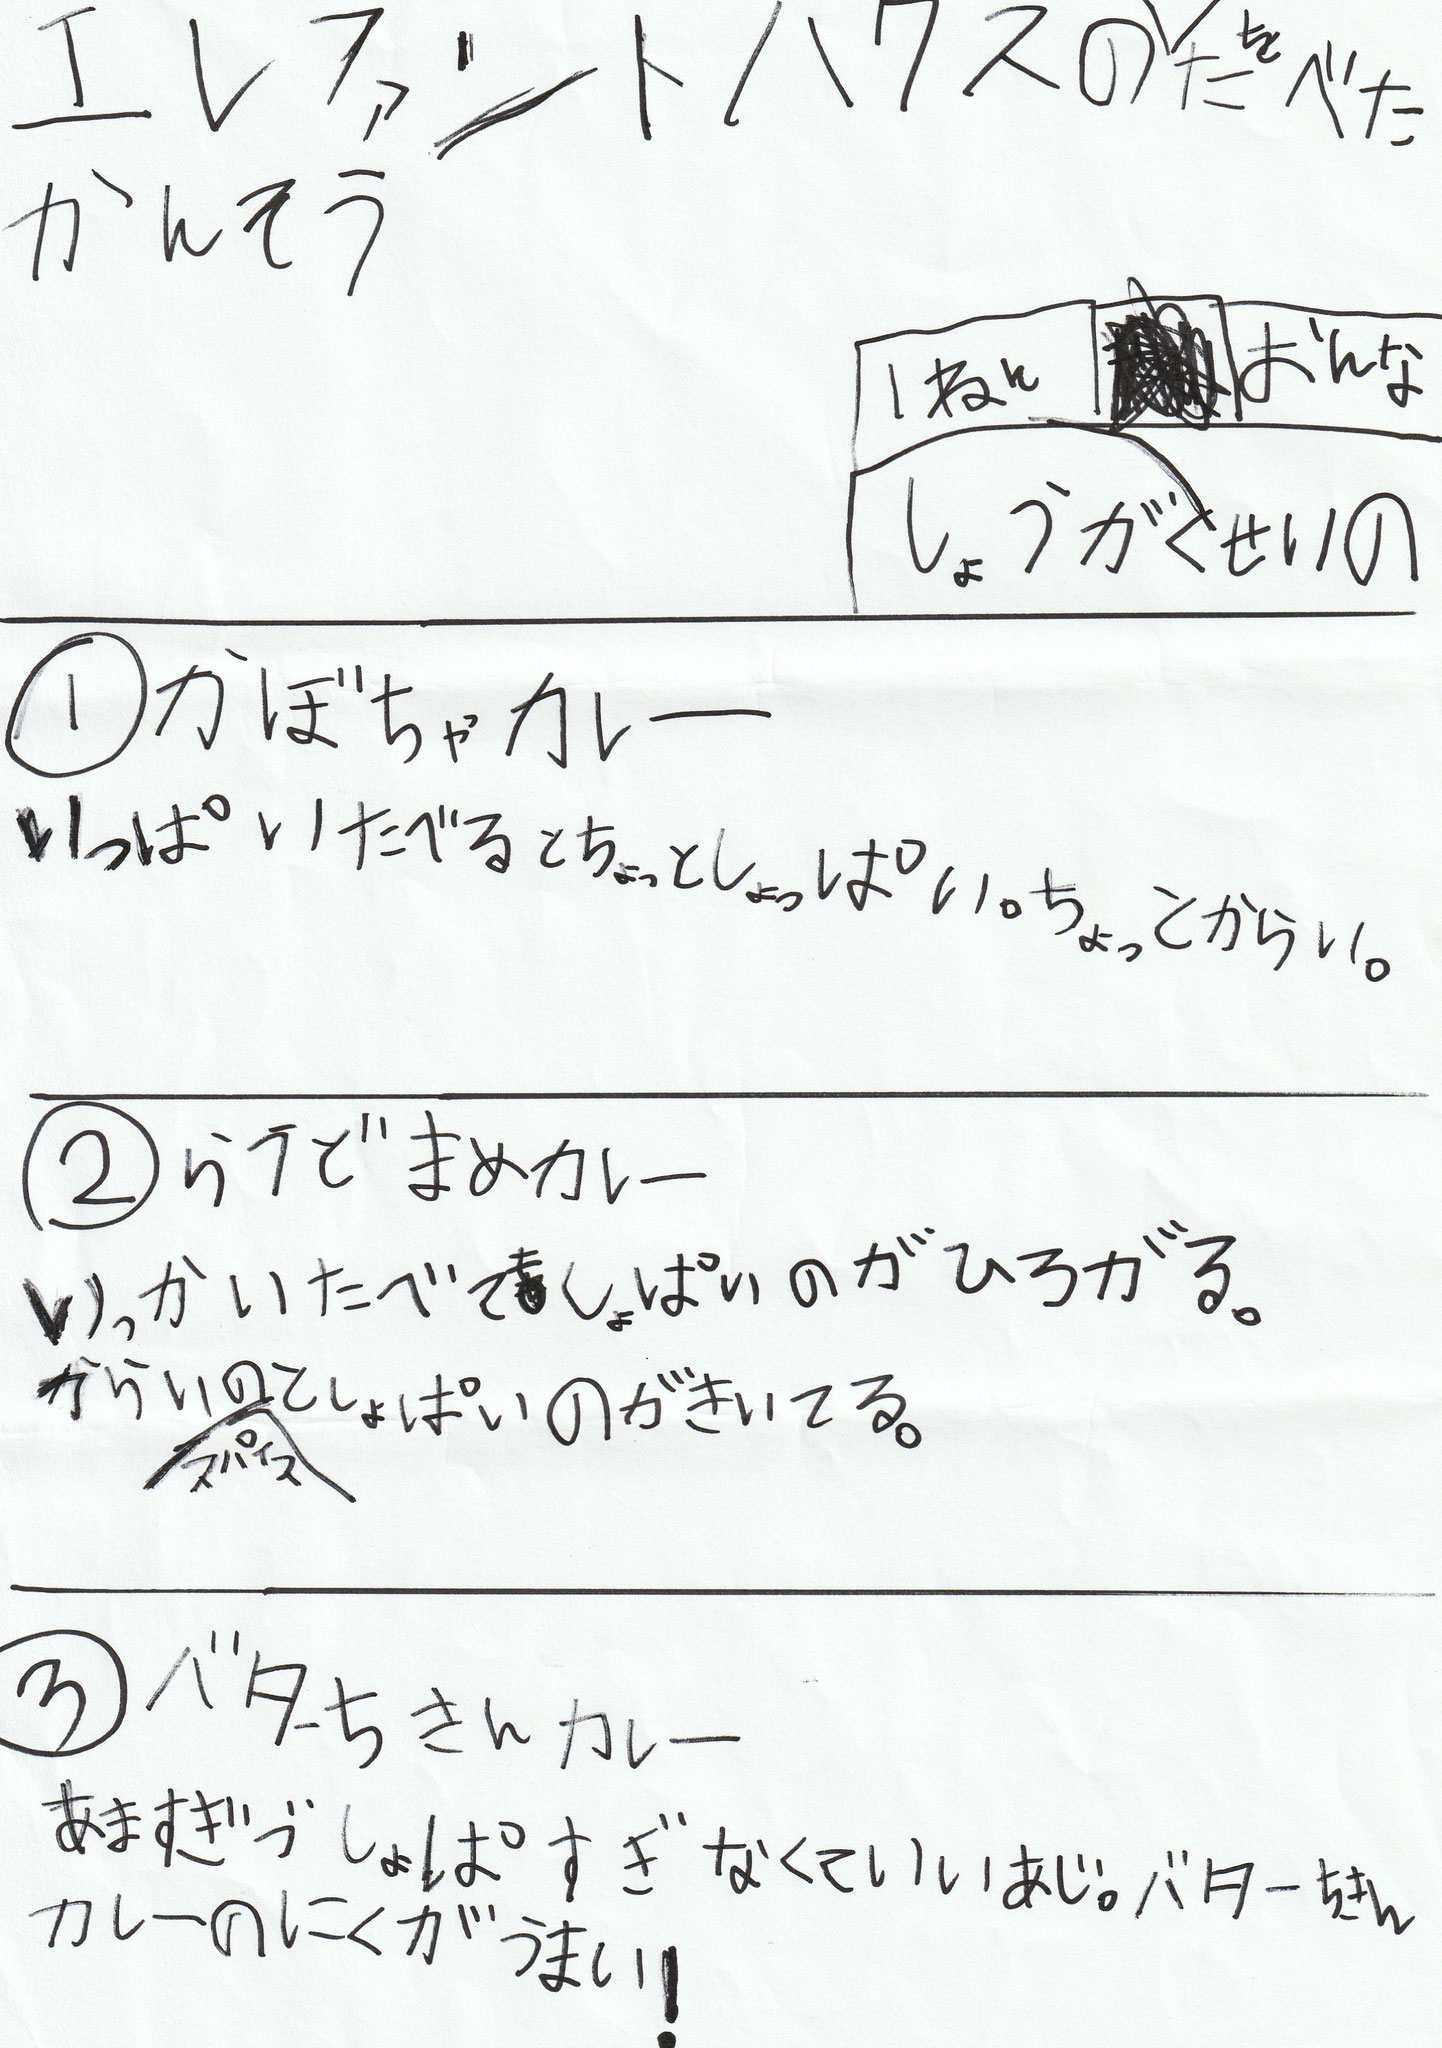 エレファントハウスのをたべた
かんそう
1ねん おんな
しょうがくせいの
① かぼちゃカレー
いっぱいたべるとちょっとしょっぱい。ちょっとからい。
② らテどまめカレー
いっかいたべてしょぱいのがひろがる。
からいのとしょぱいのがきいてる。
スパイス
③ バターちきんカレー
あますぎづしょぱすぎなくていいあじ。バターちきん
カレーのにくがうまい!